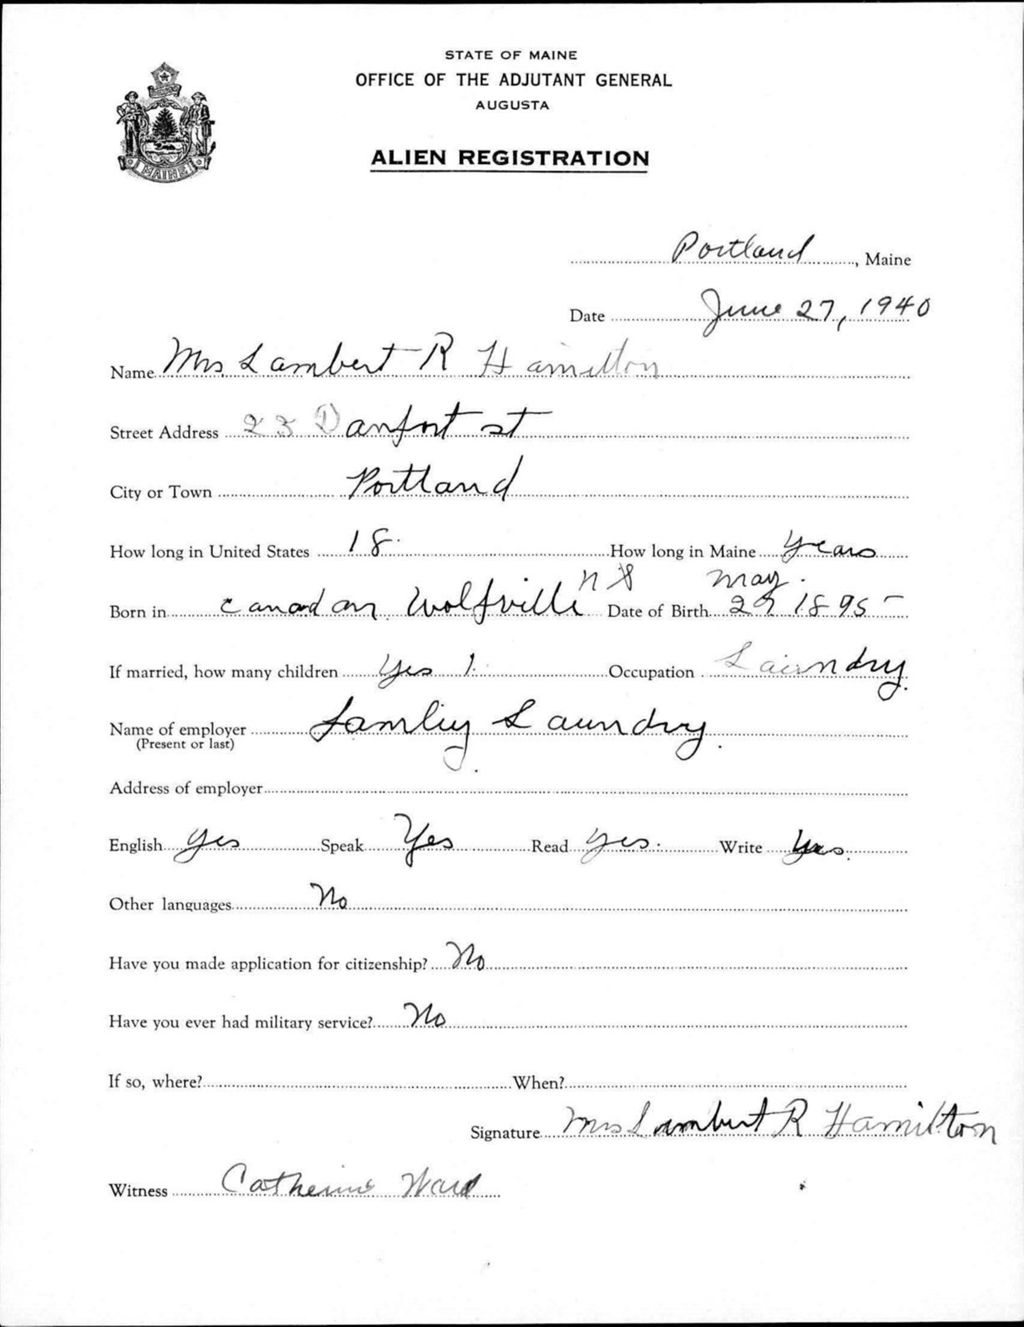 STATE OF MAINE
OFFICE OF THE ADJUTANT GENERAL
AUGUSTA
ALIEN REGISTRATION
MAINE
Portland, Maine
Date June 27, 1940
Name Mrs Lambert R Hamilton
Street Address 23 Danfort st
City or Town Portland
How long in United States 18. How long in Maine years
Born in canadan Wolfville N S Date of Birth May. 29 1895
If married, how many children Yes 1. Occupation Laundry.
Name of employer Laundry.
(Present or last)
Address of employer
English yes Speak Yes Read yes. Write yes.
Other languages No
Have you made application for citizenship? No
Have you ever had military service? No
If so, where? When?
Signature Mrs Lambert R Hamilton
Witness Catherine Ward